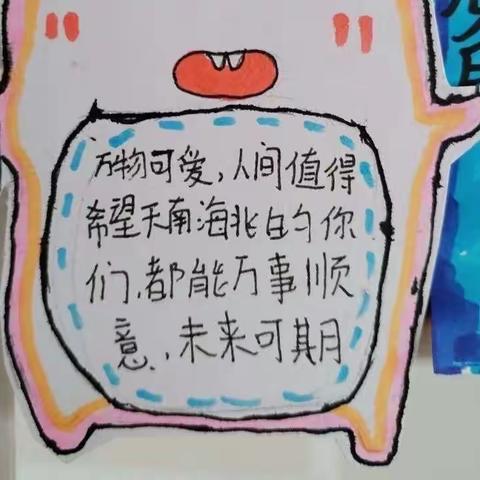 万物可爱,人间值得
希望天南海北的你
们,都能万事顺
意,未来可期